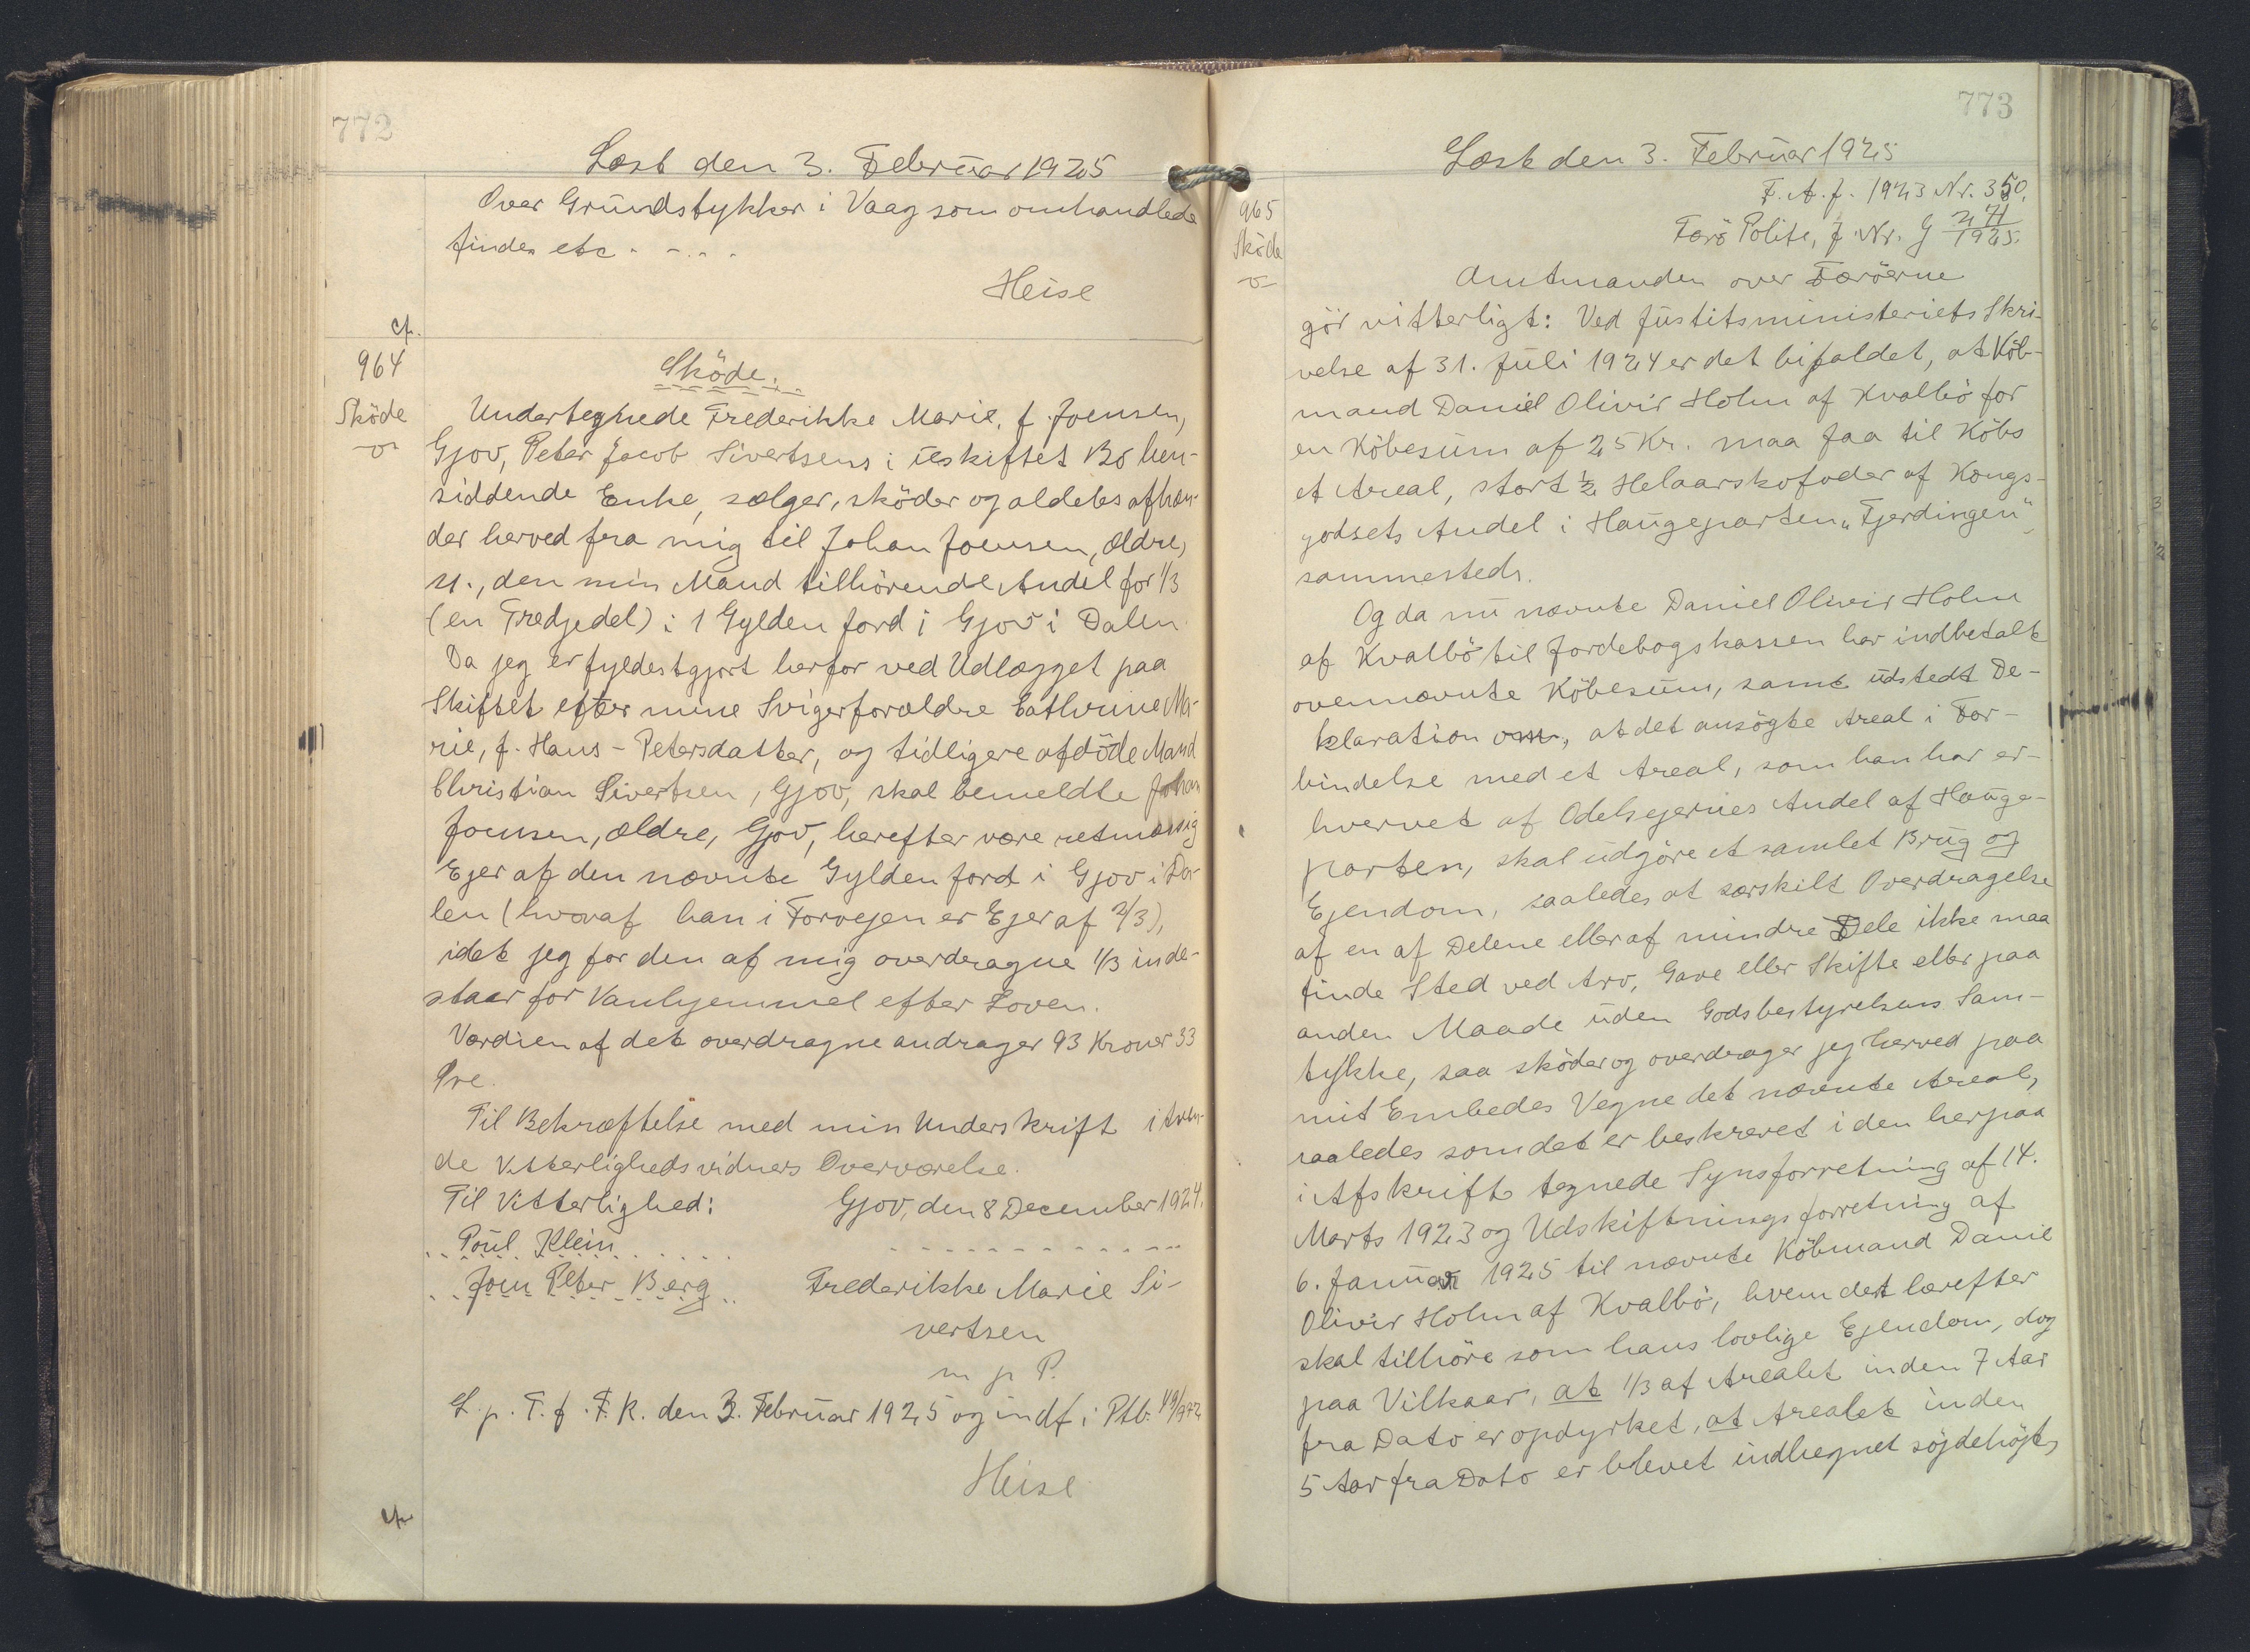 772
Læst den 3. Februar 1925
Over Grundstykker i Vaag som omhandlede
findes etc - - . . .
Heise
cfr.
964
Sköde
Sköde.
Undertegnede Frederikke Marie, f. Joensen,
Gjov, Peter Jacob Sivertsens i uskiftet Bo hen-
siddende Enke, sælger, sköder og aldeles afhæn-
der herved fra mig til Johan Joensen, ældre,
st., den min Mand tilhörende Andel for 1/3
(en Tredjedel) i 1 Gylden Jord i Gjov i Dalen.
Da jeg er fyldestgjort herfor ved Udlægget paa
Skiftet efter mine Svigerforældre Cathrine Ma-
rie, f. Hans-Petersdatter, og tidligere afdöde Mand
Christian Sivertsen, Gjov, skal bemeldte Johan
Joensen, ældre, Gjov, herefter være retmæssig
Ejer af den nævnte Gylden Jord i Gjov i Da-
len (hvoraf han i Forvejen er Ejer af 2/3),
idet jeg for den af mig overdragne 1/3 inde-
staar for Vanhjemmel efter Loven.
Værdien af det overdragne andrager 93 Kroner 33
Øre.
Til Bekræftelse med min Underskrift i tven-
de Vitterlighedsvidners Overværelse.
Til Vitterlighed: Gjov, den 8 December 1924.
Poul Klein
Joen Peter Berg Frederikke Marie Si-
vertsen
m p P.
L. p. T. f. F. R. den 3. Februar 1925 og indf i Ptb.
Heise
cfr.
773
Læst den 3. Februar 1925
965
Sköde
F. A. J. 1923 Nr. 350.
Færö Politi, J. Nr. G 271/1925.
Amtmanden over Færöerne
gör vitterligt: Ved Justitsministeriets Skri-
velse af 31. Juli 1924 er det bifaldet, at Köb-
mand Daniel Olivir Holm af Kvalbö for
en Köbesum af 25 Kr. maa faa til Köbs
et Areal, stort 1/2 Helaarskofoder af Kongs-
godsets Andel i Haugeparten "Fjerdingen",
sammesteds.
Og da nu nævnte Daniel Olivir Holm
af Kvalbö til Jordebogskassen har indbetalt
ovennævnte Köbesum, samt udstedt De-
klaration om, at det ansögte Areal i For-
bindelse med et Areal, som han har er-
hvervet af Odelsejernes Andel af Hauge-
parten, skal udgöre et samlet Brug og
Ejendom, saaledes at særskilt Overdragelse
af en af Delene eller af mindre Dele ikke maa
finde Sted ved Arv, Gave eller Skifte eller paa
anden Maade uden Godsbestyrelsens Sam-
tykke, saa sköder og overdrager jeg herved paa
mit Embedes Vegne det nævnte Areal,
saaledes som det er beskrevet i den herpaa
i Afskrift tegnede Synsforretning af 14.
Marts 1923 og Udskiftningsforretning af
6. Januar 1925 til nævnte Köbmand Daniel
Olivir Holm af Kvalbö, hvem det herefter
skal tilhöre som hans lovlige Ejendom, dog
paa Vilkaar, at 1/3 af Arealet inden 7 Aar
fra Dato er opdyrket, at Arealet inden
5 Aar fra Dato er blevet indhegnet söjdehöjt,